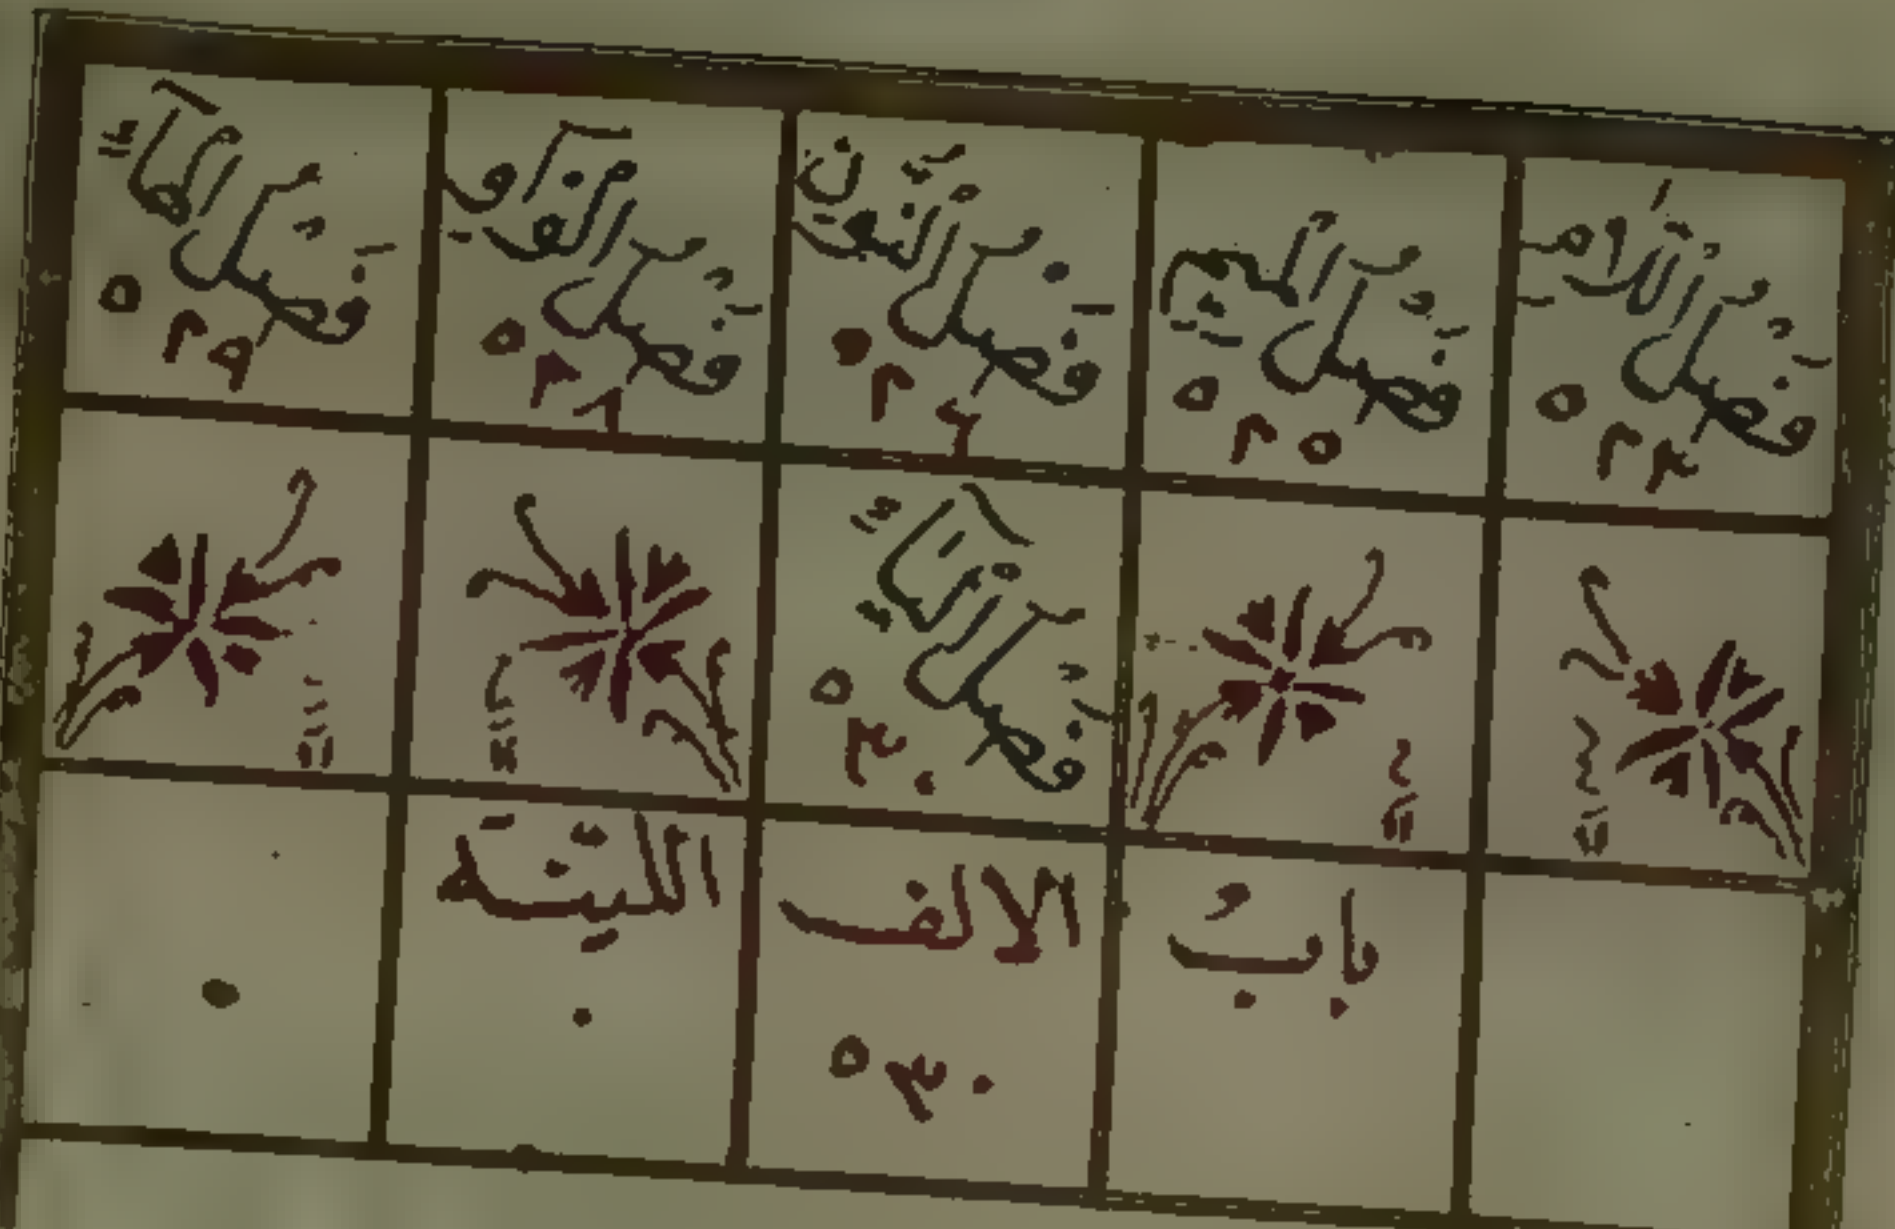 فَصْلُ اللَّامِ ٥٢٤
فَصْلُ المِيمِ ٥٢٥
فَصْلُ النُّونِ ٥٢٦
فَصْلُ الوَاو ٥٢٦
فَصْلُ الهَاءِ ٥٢٩
فَصْلُ اليَاءِ ٥٣٠
بابُ
الالف
الليّنَه
٥٣٠